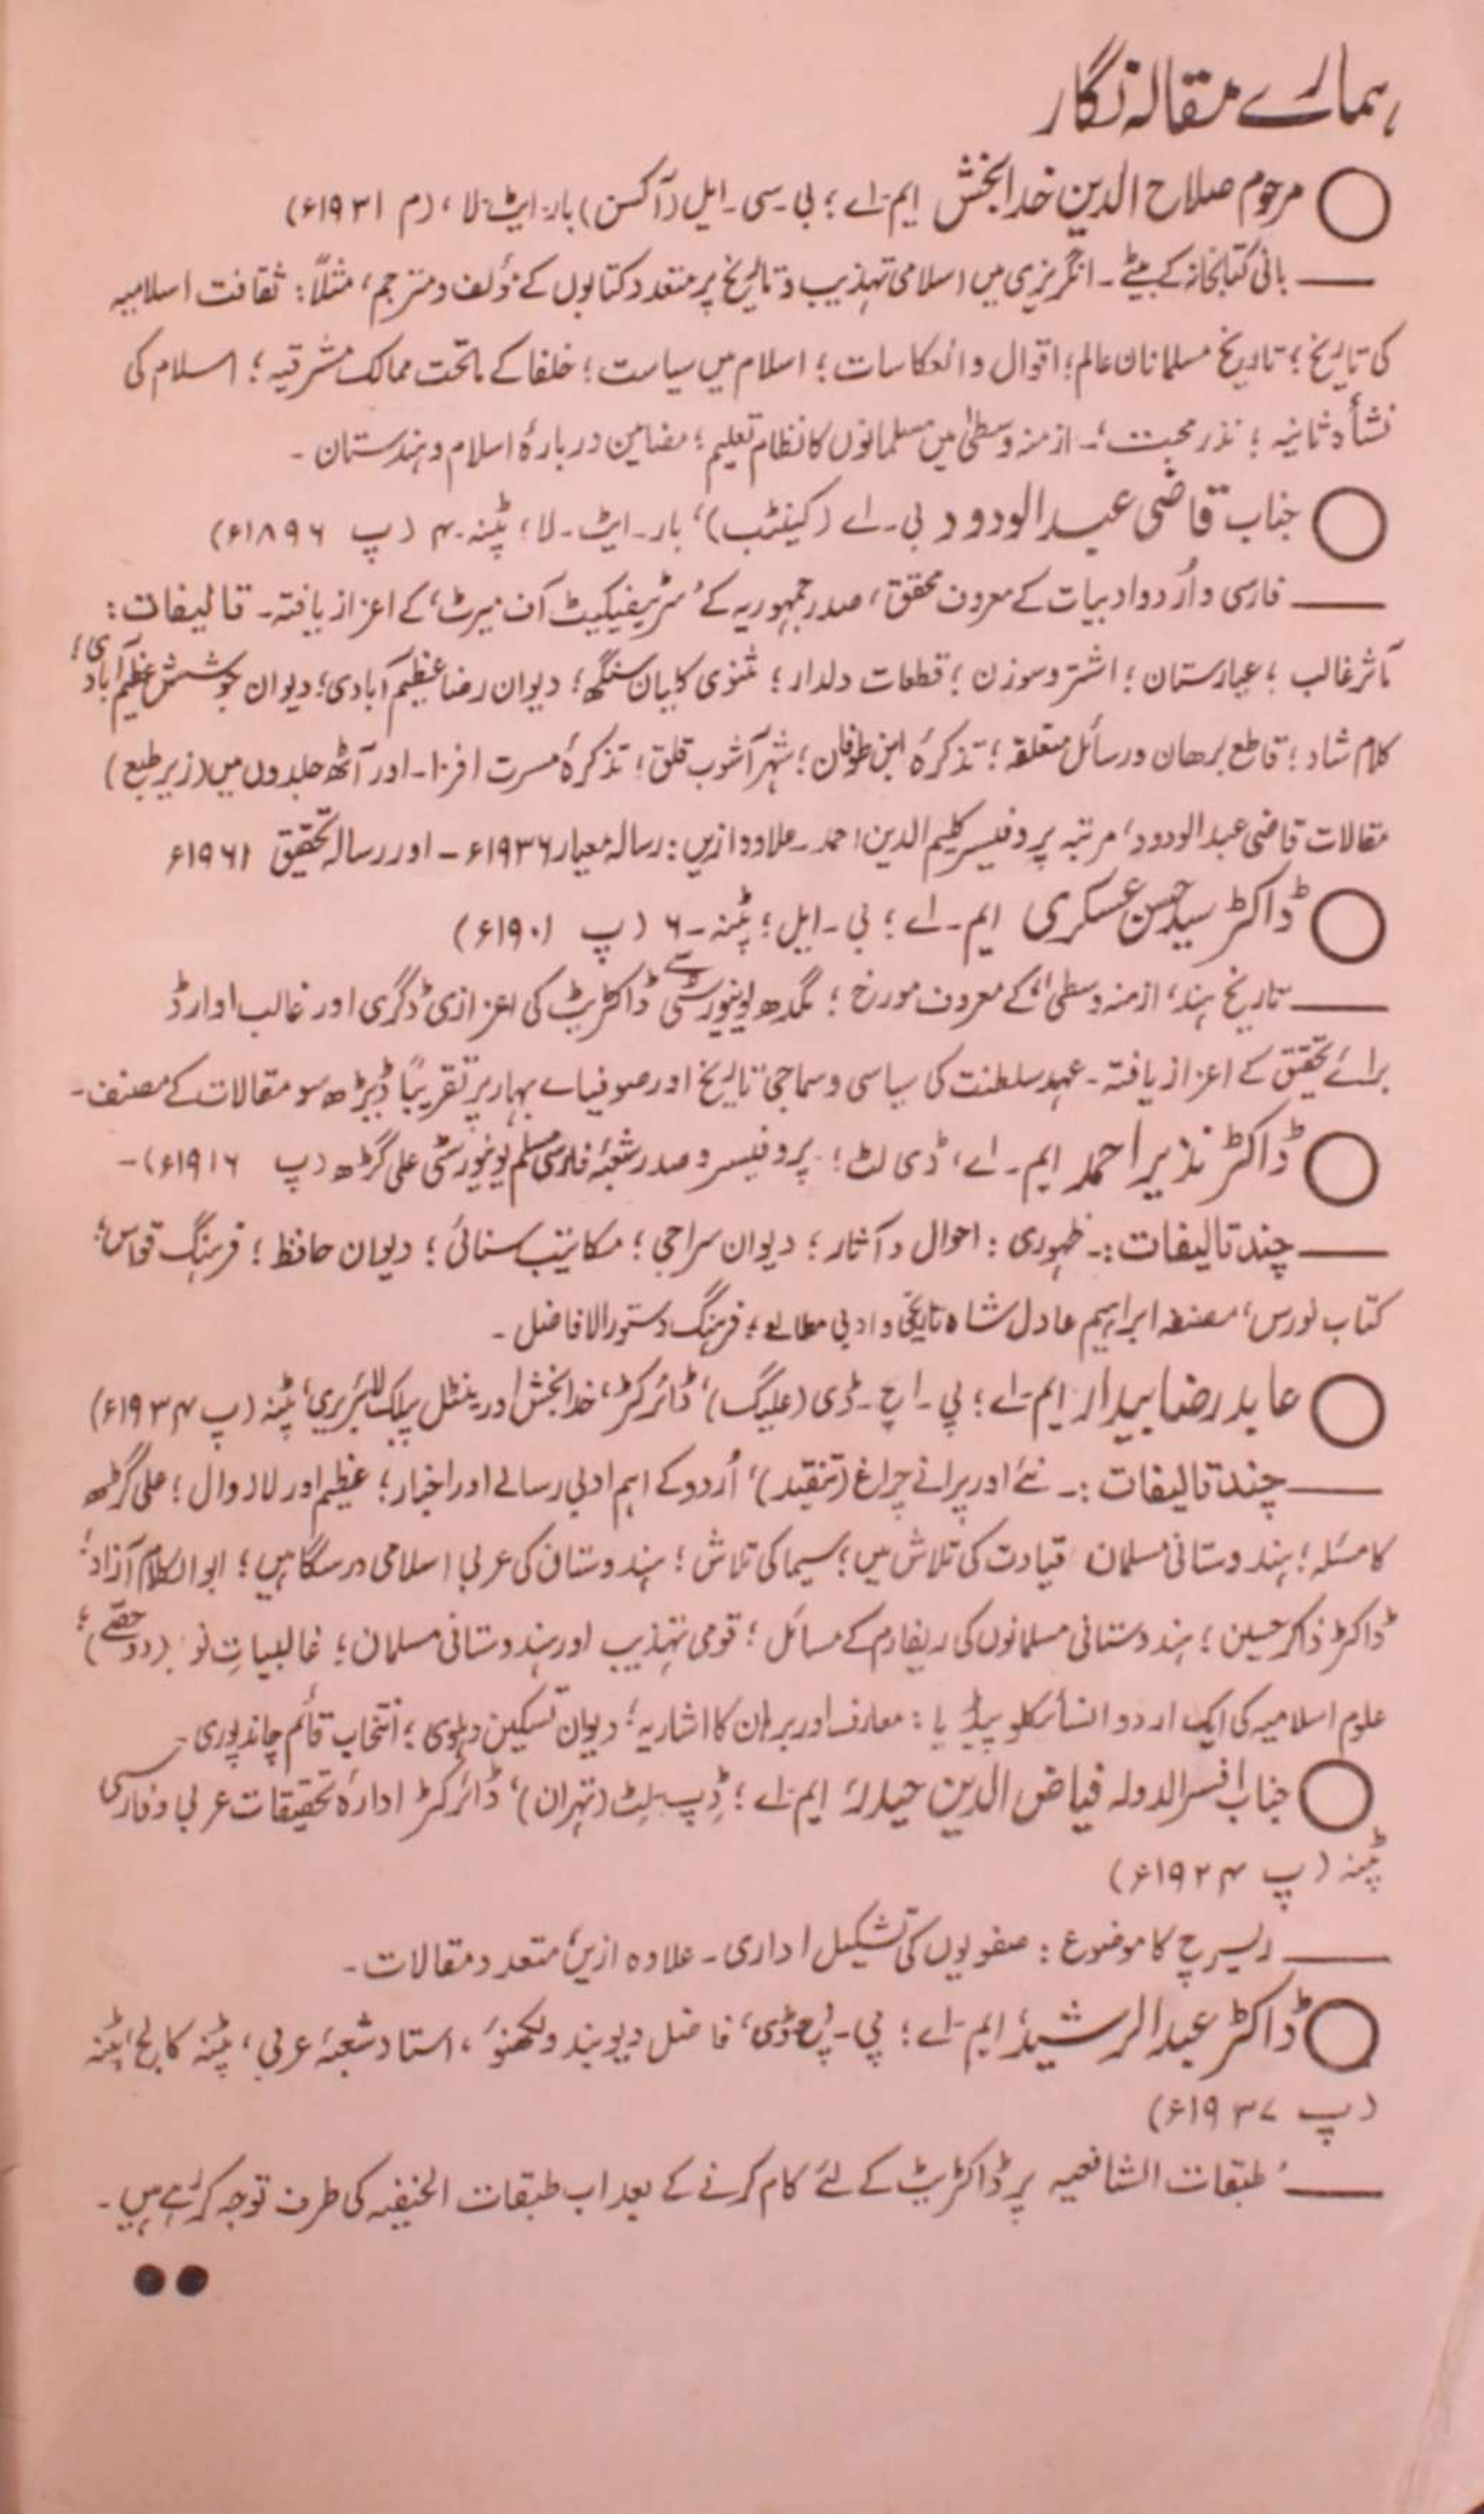 ہمارے مقالہ نگار
مرحوم صلاح الدین خدا بخش ایم-اے؛ بی-سی-ایل (آکسن) بار-ایٹ-لا، (م ۱۹۳۱ء)
بانی کتابخانہ کے بیٹے - انگریزی میں اسلامی تہذیب و تاریخ پر متعدد کتابوں کے مؤلف و مترجم، مثلاً: ثقافت اسلامیہ
کی تاریخ؛ تاریخ مسلمانان عالم؛ اقوال و انعکاسات؛ اسلام میں سیاست؛ خلفا کے ماتحت ممالک مشرقیہ؛ اسلام کی
نشأۃ ثانیہ؛ نذر محبت؛ - ازمنہ وسطیٰ میں مسلمانوں کا نظام تعلیم؛ مضامین دربارۂ اسلام و ہندستان -
جناب قاضی عبدالودود بی-اے (کینٹب)، بار-ایٹ-لا؛ پٹنہ-۴ (پ ۱۸۹۶ء)
فارسی و اُردو ادبیات کے معروف محقق، صدر جمہوریہ کے 'سرٹیفیکیٹ آف میرٹ' کے اعزاز یافتہ - تالیفات:
مآثر غالب؛ عیارستان؛ اشتر و سوزن؛ قطعات دلدار؛ مثنوی کلیان سنگھ؛ دیوان رضا عظیم آبادی؛ دیوان جوشش عظیم آبادی؛
کلام شاد؛ قاطع برھان و رسائل متعلقہ؛ تذکرۂ ابن طوفان؛ شہر آشوب قلق؛ تذکرۂ مسرت افزا - اور آٹھ جلدوں میں (زیر طبع)
مقالات قاضی عبدالودود، مرتبہ پروفیسر کلیم الدین احمد - علاوہ ازیں: رسالہ معیار ۱۹۳۶ء - اور رسالہ تحقیق ۱۹۶۱ء
ڈاکٹر سید حسن عسکری ایم-اے؛ بی-ایل؛ پٹنہ-۶ (پ ۱۹۰۱ء)
تاریخ ہند، ازمنہ وسطیٰ، کے معروف مورخ؛ مگدھ یونیورسٹی سے ڈاکٹریٹ کی اعزازی ڈگری اور غالب اوارڈ
برائے تحقیق کے اعزاز یافتہ - عہد سلطنت کی سیاسی و سماجی تاریخ اور صوفیاے بہار پر تقریباً ڈیڑھ سو مقالات کے مصنف -
ڈاکٹر نذیر احمد ایم-اے، ڈی لٹ؛ پروفیسر و صدر شعبۂ فارسی مسلم یونیورسٹی علی گڑھ (پ ۱۹۱۶ء) -
چند تالیفات:- ظہوری: احوال و آثار؛ دیوان سراجی؛ مکاتیب سنائی؛ دیوان حافظ؛ فرہنگ قواس؛
کتاب نورس، مصنفہ ابراہیم عادل شاہ تاریخی و ادبی مطالعے؛ فرہنگ دستور الافاضل -
عابد رضا بیدار ایم-اے؛ پی-اچ-ڈی (علیگ)، ڈائرکٹر، خدا بخش اورینٹل پبلک لائبریری، پٹنہ (پ ۱۹۳۴ء)
چند تالیفات:- نئے اور پرانے چراغ (تنقید)، اُردو کے اہم ادبی رسالے اور اخبار؛ عظیم اور لازوال؛ علی گڑھ
کا مسئلہ؛ ہندوستانی مسلمان قیادت کی تلاش میں؛ سیما کی تلاش؛ ہندوستان کی عربی اسلامی درسگاہیں؛ ابوالکلام آزاد؛
ڈاکٹر ذاکر حسین؛ ہندوستانی مسلمانوں کی ریفارم کے مسائل؛ قومی تہذیب اور ہندوستانی مسلمان؛ غالبیاتِ نو (دو حصّے)؛
علوم اسلامیہ کی ایک اردو انسائکلوپیڈیا: معارف اور برہان کا اشاریہ؛ دیوان تسکین دہلوی؛ انتخاب قائم چاندپوری -
جناب افسر الدولہ فیاض الدین حیدر ایم-اے؛ ڈِپ-لِٹ (تہران)، ڈائرکٹر ادارۂ تحقیقات عربی و فارسی
پٹنہ (پ ۱۹۲۴ء)
ریسرچ کا موضوع: صفویوں کی تشکیل اداری - علاوہ ازیں متعدد مقالات -
ڈاکٹر عبدالرشید ایم-اے؛ پی-اچ-ڈی، فاضل دیوبند و لکھنؤ، استاد شعبۂ عربی، پٹنہ کالج، پٹنہ
(پ ۱۹۳۷ء)
طبقات الشافعیہ پر ڈاکٹریٹ کے لئے کام کرنے کے بعد اب طبقات الحنفیہ کی طرف توجہ کر رہے ہیں -